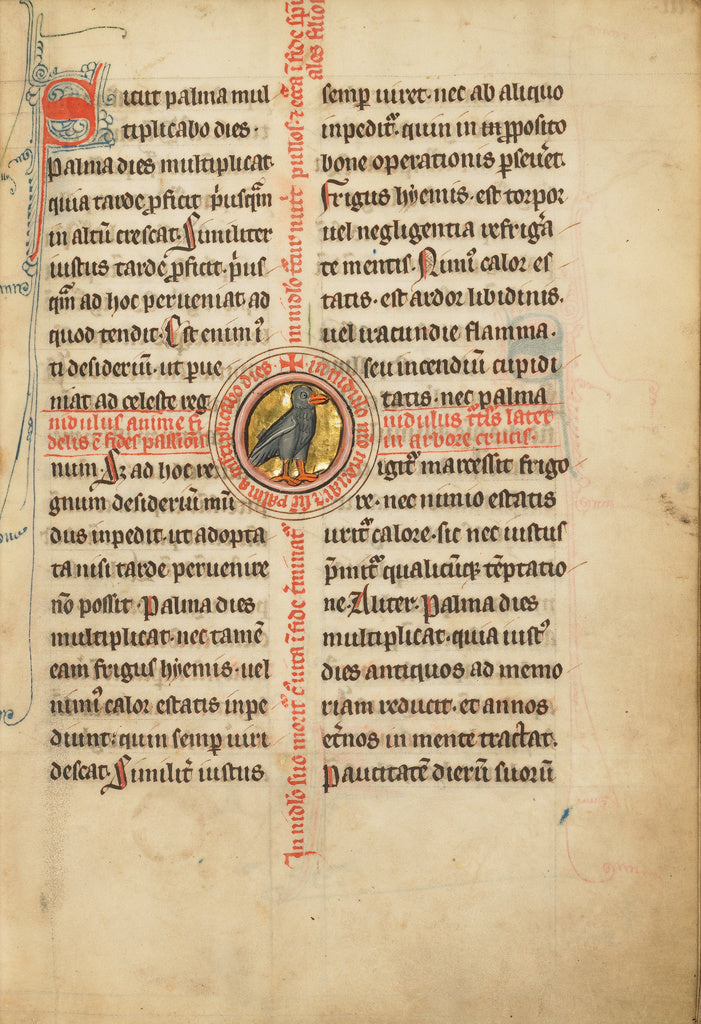 Sicut palma mul
tiplicabo dies·
Palma dies multiplicat·
quia tarde ꝓficit p̄usqm̄
in altū crescat· Similiter
iustus tarde ꝓficit· p̄us
qm̄ ad hoc perueniat· ad
quod tendit· Est enim ī
ti desideriū· ut pue
niat ad celeste reg
num· Sz ad hoc re
gnum desideriū mū
dus inpedit· ut adopta
ta nisi tarde peruenire
nō possit· Palma dies
multiplicat· nec tamē
eam frigus hyemis· uel
nimiꝰ calor estatis inpe
diunt· quin semꝑ uiri
descat· Similit̄ iustus
semꝑ uiret· nec ab aliquo
inpedit᷑· quin in ꝓposito
bone operationis ꝑseuēt·
Frigus hyemis· est torpor
uel negligentia refrigā
te mentis· Nimiꝰ calor es
tatis· est ardor libidinis·
uel iracundie flamma·
seu incendiū cupidi
tatis· nec palma
igit᷑ marcessit frigo
re· nec nimio estatis
urit᷑ calore· sic nec iustus
p̄mit᷑ qualicūqꝫ tēptatio
ne· Aliter· Palma dies
multiplicat· quia iustꝰ
dies antiquos ad memo
riam reducit· et annos
et̄nos in mente tractat·
Paucitatē dierū suorū
in nidłō nut᷑it pullos· ⁊ ecc̄a ī fide spī
ales filios
nidulus anime fi
delis ē fides passioniſ
nidulus latet
in arbore crucis·
✠ in nidulo meo moriar ⁊ sic̄ palma multiplicabo dies·
In nidłō suo morit᷑ cū uita ī fide t̄minat᷑